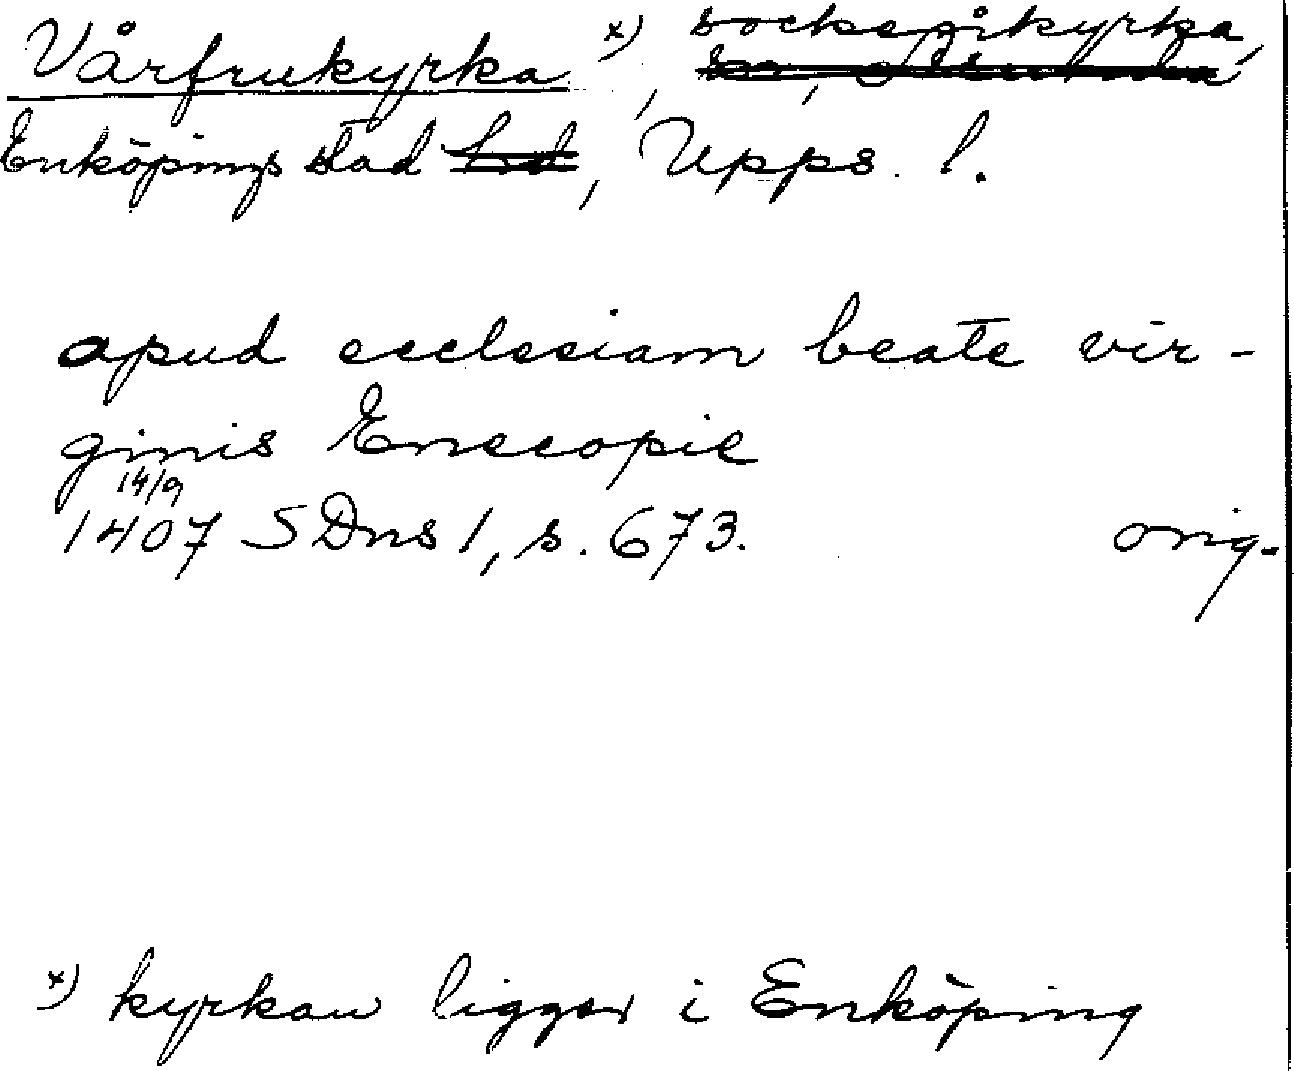 Vårfrukyrka x), sockenkyrka,
Enköpings stad, Upps. l.
apud ecclesiam beate vir-
ginis Enecopie
14/9
1407 SDns 1, s. 673. orig.
x) kyrkan ligger i Enköping